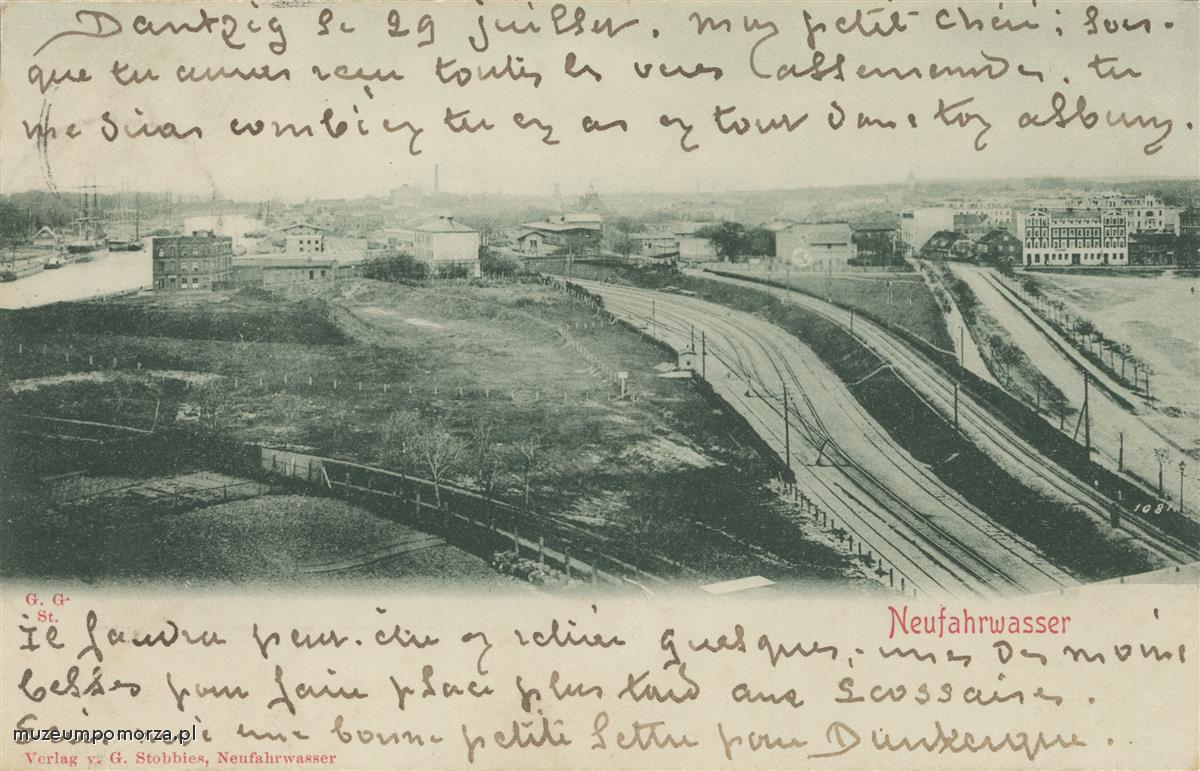 Dantzig le 29 juillet. Mon petit Chéri; lors-
que tu auras reçu toutes les vues allemandes, tu
me diras combien tu en as en tout dans ton album.
1081
G. G.
St.
Neufahrwasser
Il faudra peut-être en retirer quelques-unes des moins
belles pour faire place plus tard aux Ecossaises.
une bonne petite lettre pour Dunkerque.
muzeumpomorza.pl
Verlag v. G. Stobbies, Neufahrwasser